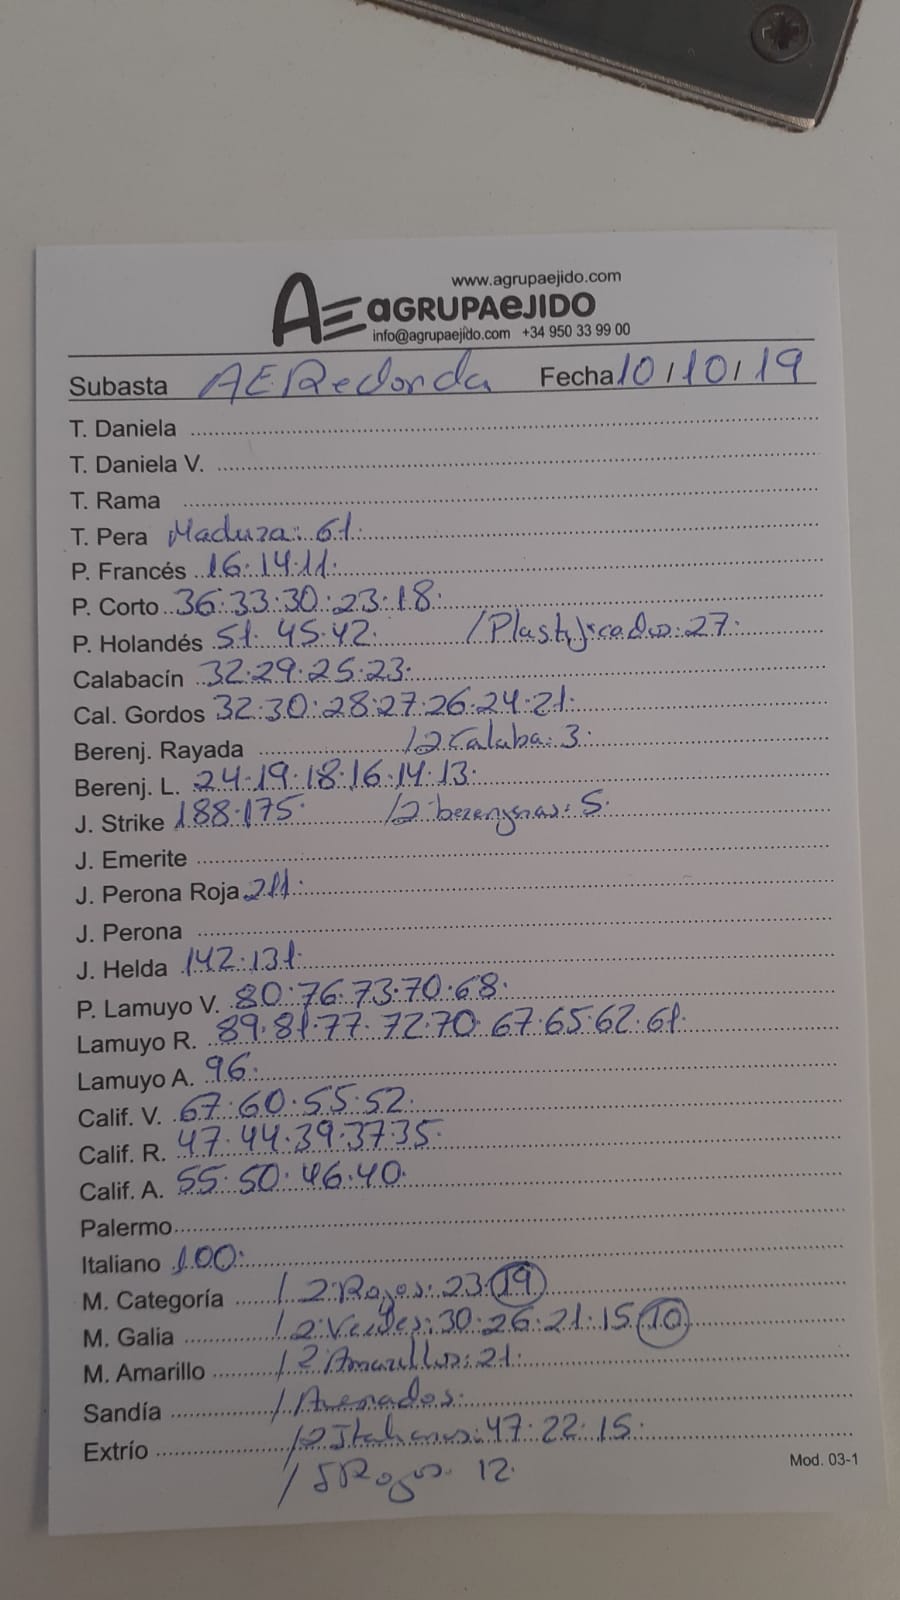 www.agrupaejido.com
AE aGRUPAeJIDO
info@agrupaejido.com +34 950 33 99 00
Subasta AERedonda Fecha 10/10/19
T. Daniela
T. Daniela V.
T. Rama
T. Pera Madura: 61.
P. Francés 16.14.11.
P. Corto 36.33.30.23.18.
P. Holandés 51.45.42. / Plastificados: 27.
Calabacín 32.29.25.23.
Cal. Gordos 32.30.28.27.26.24.21.
Berenj. Rayada /2 Calaba: 3.
Berenj. L. 24.19.18.16.14.13.
J. Strike 188.175. /2 berengenas: 5.
J. Emerite
J. Perona Roja 211.
J. Perona
J. Helda 142.131.
P. Lamuyo V. 80.76.73.70.68.
Lamuyo R. 89.81.77.72.70.67.65.62.61.
Lamuyo A. 96.
Calif. V. 67.60.55.52.
Calif. R. 47.44.39.37.35.
Calif. A. 55.50.46.40.
Palermo
Italiano 100.
M. Categoría / 2 Rojos: 23.19
M. Galia / 2 Verdes: 30.26.21.15.10
M. Amarillo / 2 Amarillos: 21.
Sandía / Asenados.
Extrío / 2 Italianos: 47.22.15.
/ SRojos. 12.
Mod. 03-1